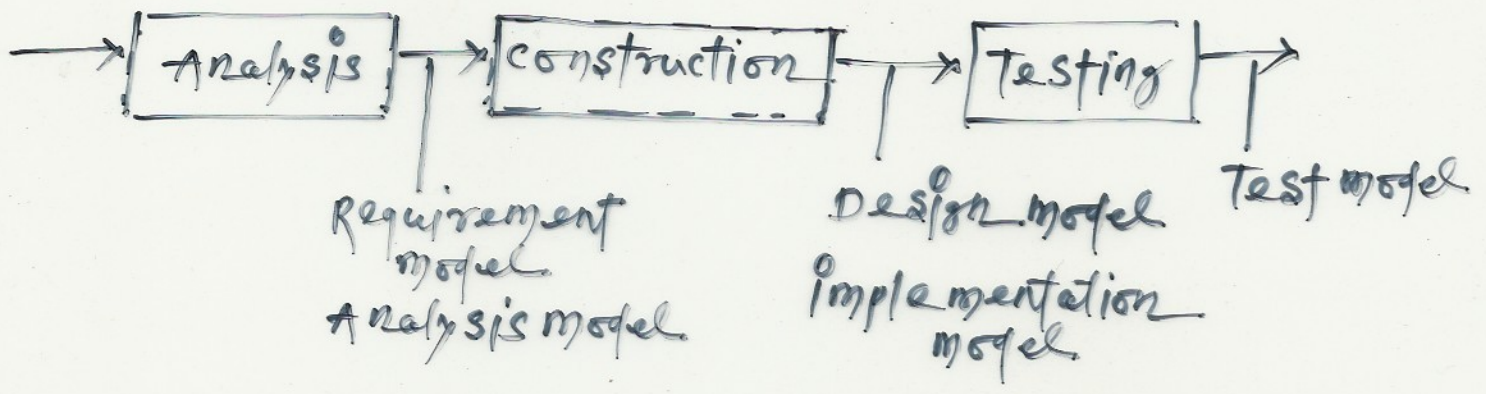 Analysis
construction
Testing
Requirement
model
Analysis model
Design model
implementation
model
Test model